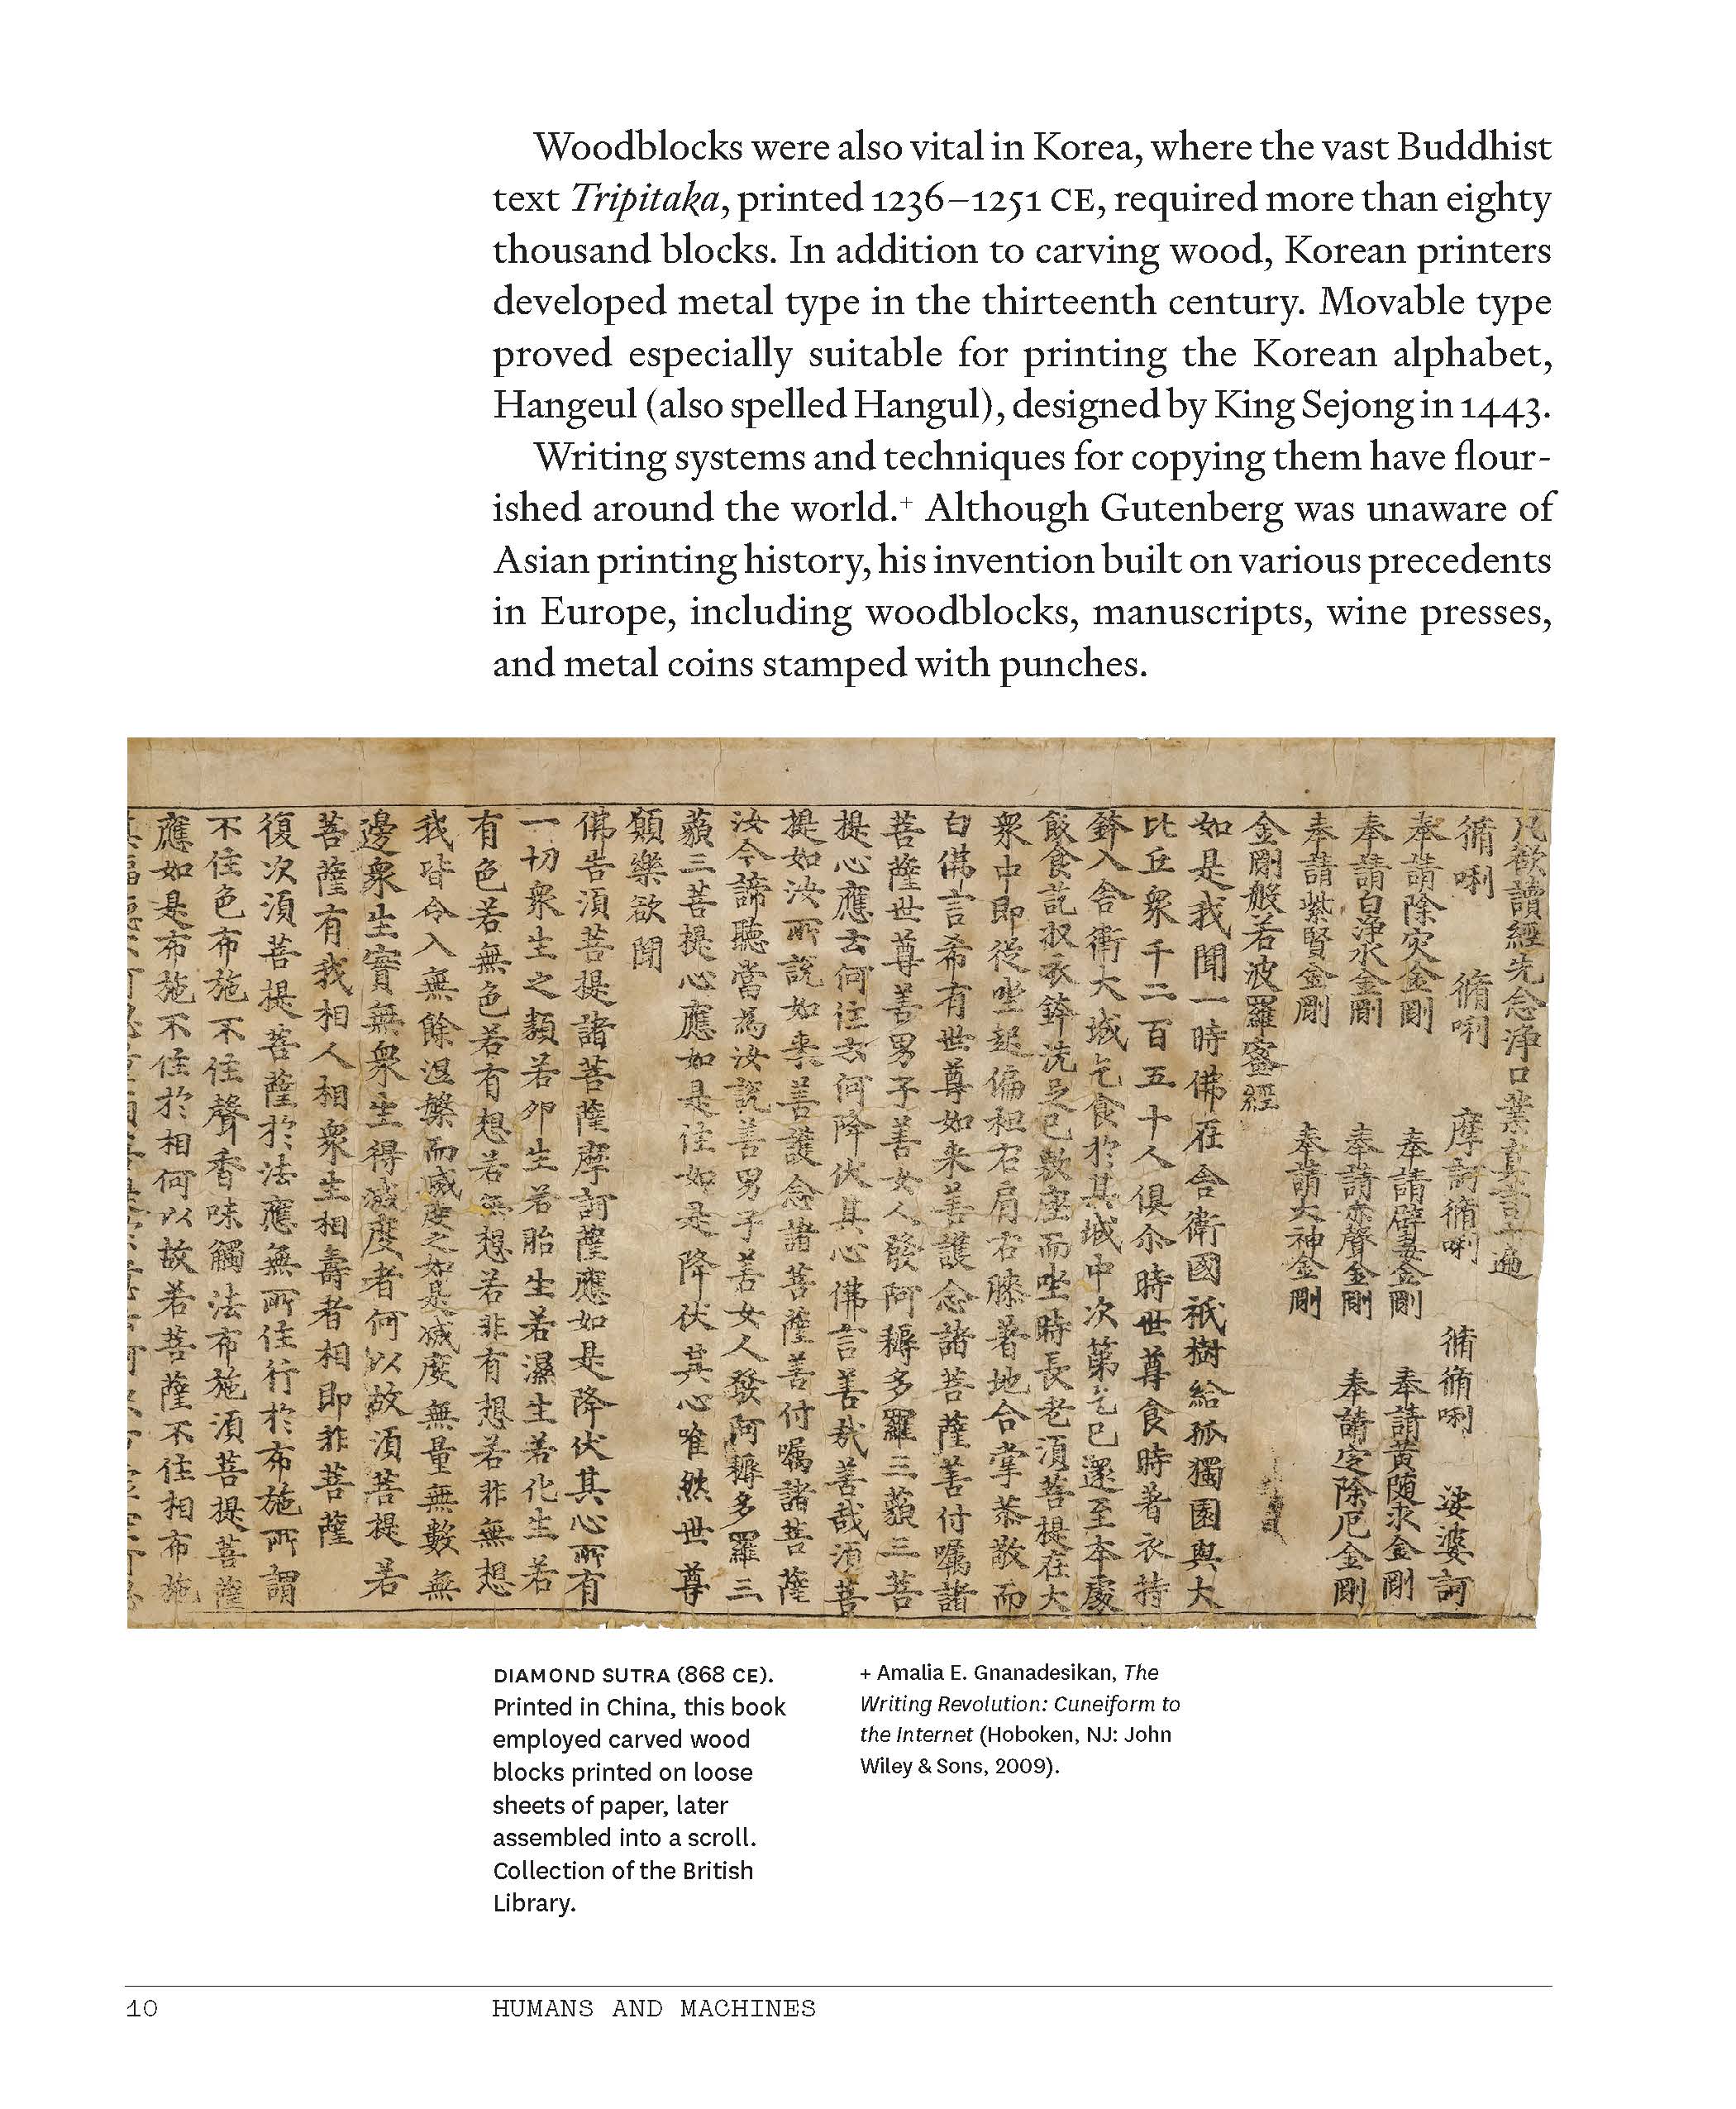 Woodblocks were also vital in Korea, where the vast Buddhist
text Tripitaka, printed 1236–1251 CE, required more than eighty
thousand blocks. In addition to carving wood, Korean printers
developed metal type in the thirteenth century. Movable type
proved especially suitable for printing the Korean alphabet,
Hangeul (also spelled Hangul), designed by King Sejong in 1443.
Writing systems and techniques for copying them have flour-
ished around the world.+ Although Gutenberg was unaware of
Asian printing history, his invention built on various precedents
in Europe, including woodblocks, manuscripts, wine presses,
and metal coins stamped with punches.
凡欲讀經先念淨口業真言一遍
脩唎 脩唎 摩訶脩唎 脩脩唎 娑婆訶
奉請除灾金剛 奉請辟毒金剛 奉請黄随求金剛
奉請白淨水金剛 奉請赤聲金剛 奉請定除厄金剛
奉請紫賢金剛 奉請大神金剛
金剛般若波羅蜜經
如是我聞一時佛在舍衛國祇樹給孤獨園與大
比丘衆千二百五十人俱尒時世尊食時著衣持
鉢入舍衛大城乞食於其城中次第乞已還至本處
飯食訖収衣鉢洗足已敷座而坐時長老須菩提在大
衆中即從坐起偏袒右肩右膝著地合掌恭敬而
白佛言希有世尊如来善護念諸菩薩善付囑諸
菩薩世尊善男子善女人發阿耨多羅三藐三菩
提心應云何住云何降伏其心佛言善哉善哉須菩
提如汝所說如来善護念諸菩薩善付囑諸菩薩
汝今諦聽當為汝說善男子善女人發阿耨多羅三
藐三菩提心應如是住如是降伏其心唯然世尊
願樂欲聞
佛告須菩提諸菩薩摩訶薩應如是降伏其心所有
一切衆生之類若卵生若胎生若濕生若化生若
有色若無色若有想若無想若非有想若非無想
我皆令入無餘涅槃而滅度之如是滅度無量無數無
邊衆生實無衆生得滅度者何以故須菩提若
菩薩有我相人相衆生相壽者相即非菩薩
復次須菩提菩薩於法應無所住行於布施所謂
不住色布施不住聲香味觸法布施須菩提菩薩
應如是布施不住於相何以故若菩薩不住相布施
DIAMOND SUTRA (868 CE).
Printed in China, this book
employed carved wood
blocks printed on loose
sheets of paper, later
assembled into a scroll.
Collection of the British
Library.
+ Amalia E. Gnanadesikan, The
Writing Revolution: Cuneiform to
the Internet (Hoboken, NJ: John
Wiley & Sons, 2009).
10
HUMANS AND MACHINES